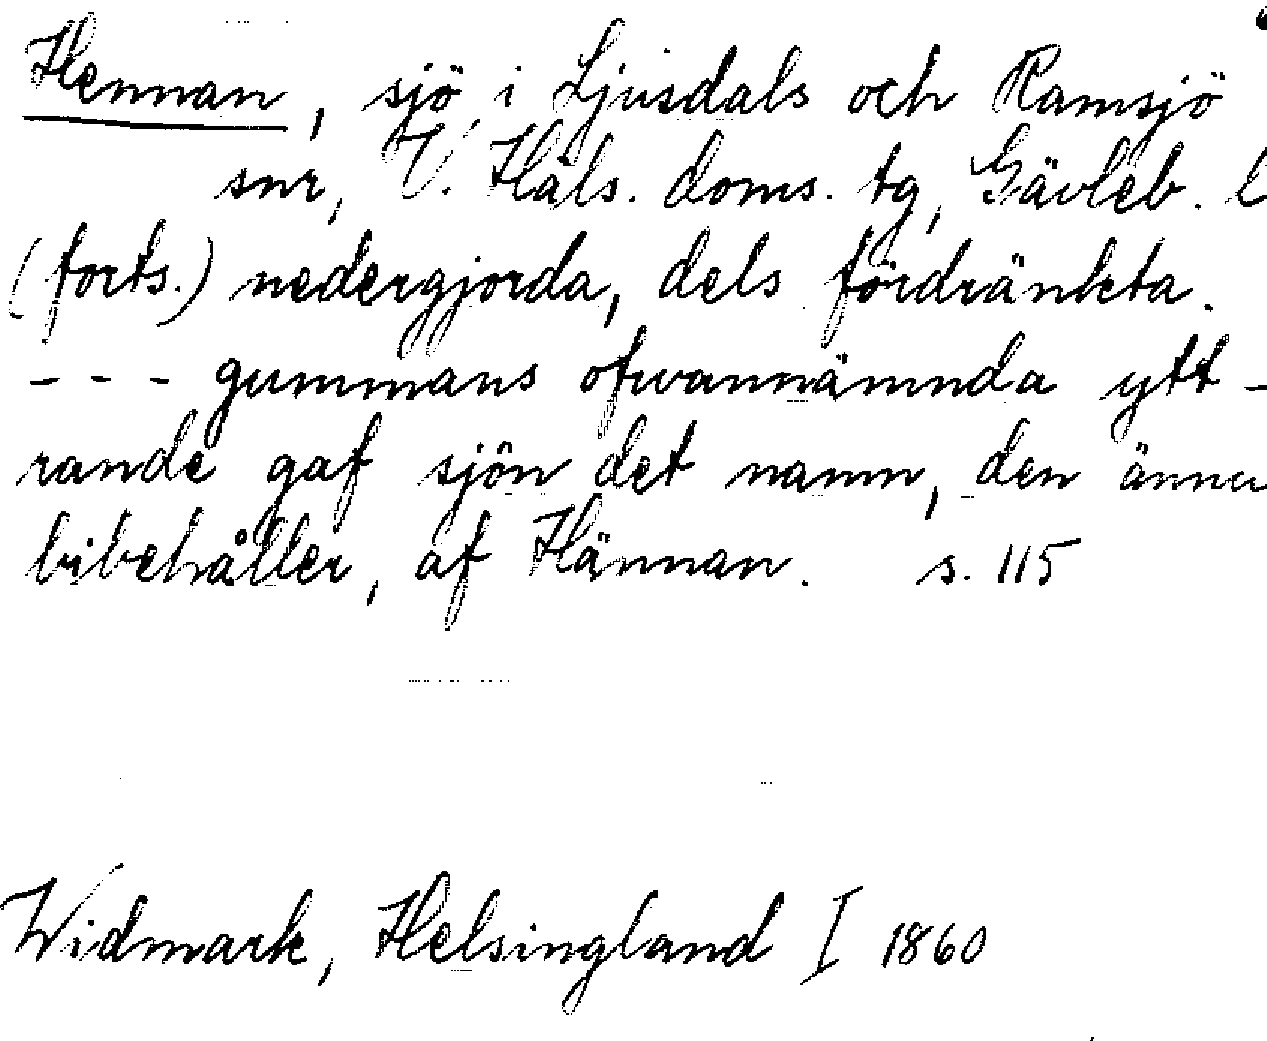 Hennan, sjö i Ljusdals och Ramsjö
snr, V. Häls. doms. tg, Gävleb. l
(forts.) nedergjorda, dels fördränkta.
- - - gummans ofvannämnda ytt-
rande gaf sjön det namn, den ännu
bibehåller, af Hännan. s. 115
Widmark, Helsingland I 1860